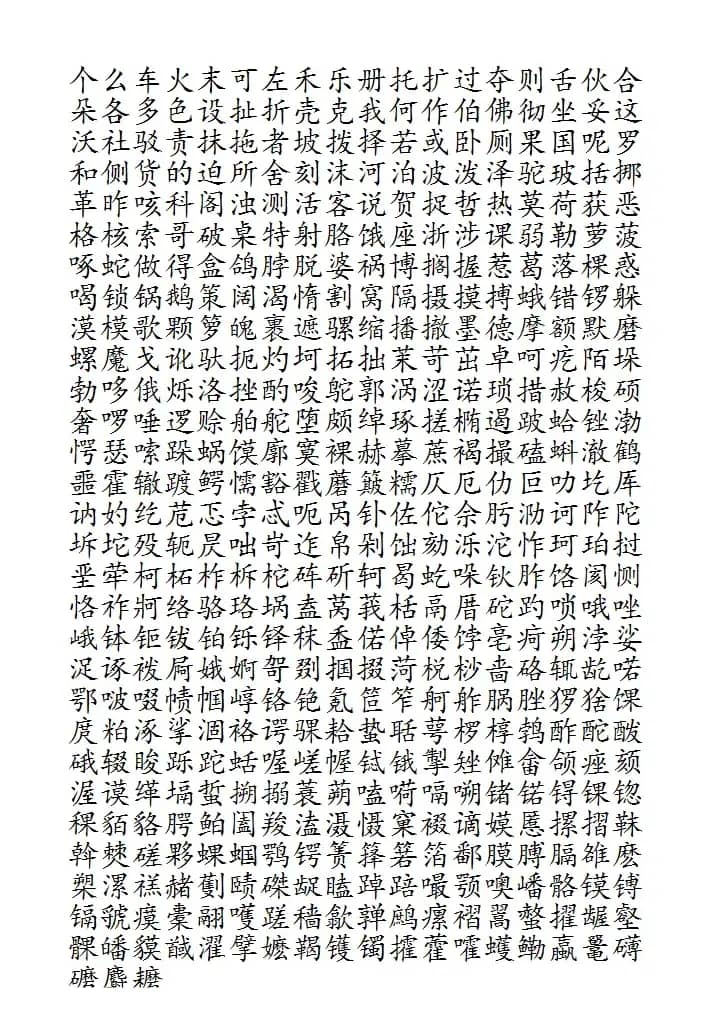 个么车火末可左禾乐册托扩过夺则舌伙合
朵各多色设扯折壳克我何作伯佛彻坐妥这
沃社驳责抹拖者坡拨择若或卧厕果国呢罗
和侧货的迫所舍刻沫河泊波泼泽驼玻括挪
革昨咳科阁浊测活客说贺捉哲热莫荷获恶
格核索哥破桌特射胳饿座浙涉课弱勒萝菠
啄蛇做得盒鸽脖脱婆祸博搁握惹葛落棵惑
喝锁锅鹅策阔渴惰割窝隔摄摸搏蛾错锣躲
漠模歌颗箩魄裹遮骡缩播撤墨德摩额默磨
螺魔戈讹驮扼灼坷拓拙茉苛茁卓呵疙陌垛
勃哆俄烁洛挫酌唆鸵郭涡涩诺琐措赦梭硕
奢啰唾逻赊舶舵堕颇绰琢搓椭遏跛蛤锉渤
愕瑟嗦跺蜗馍廓寞裸赫摹蔗褐撮磕蝌澈鹤
噩霍辙踱鳄懦豁戳蘑簸糯仄厄仂叵叻圪厍
讷妁纥苊忑孛忒呃呙钋佐佗佘肟泐诃阼陀
坼坨殁轭昃咄岢迮帛剁饳劾泺沱怍珂珀挝
垩荦柯柘柞柝柁砗斫轲曷虼哚钬胙饹阂恻
恪祚牁络骆珞埚盍莴莪栝鬲厝砣趵唢哦唑
峨钵钷钹铂铄铎秣盉偌倬倭饽亳疴朔浡娑
浞诼袯扃娥婀哿剟掴掇菏棁桫啬硌辄龁喏
鄂啵啜帻帼崞铬铯氪笸笮舸舴脶脞猡猞馃
庹粕涿挲涸袼谔骒耠蛰聒萼椤椁鹁酢酡酦
硪辍畯跞跎蛞喔嵯幄铽锇掣矬傩畲颌痤颏
渥谟缂塥蜇搠搦蓑蒴嗑嗬嗝嗍锗锘锝锞锪
稞貊貉腭鲌阖羧溘滠慑窠裰谪嫫慝摞摺靺
斡僰磋夥蜾蝈鹗锷箦箨箬箔鄱膜膊膈雒麽
槊漯禚赭劐赜磔龊瞌踔踣嘬颚噢嶓骼镆镈
镉虢瘼橐翮嚄蹉穑歙亸鹧瘰褶翯螫擢龌壑
髁皤貘馘濯擘嬷鞨镬镯攉藿嚯蠖鳓蠃鼍礴
礳麝耱